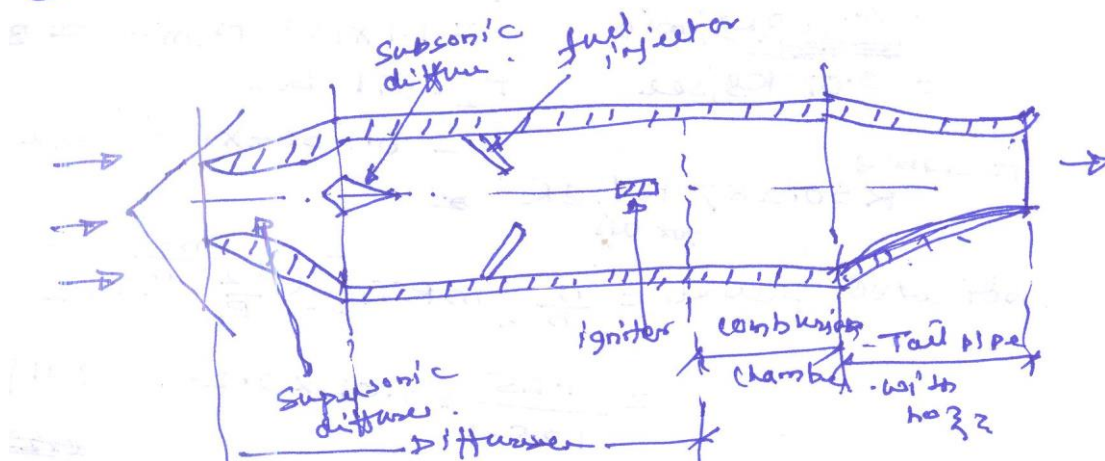 Subsonic
diffuser.
fuel
injector
igniter
combusion
chamber
Tail pipe
with
nozz
Supersonic
diffuser.
Diffuser